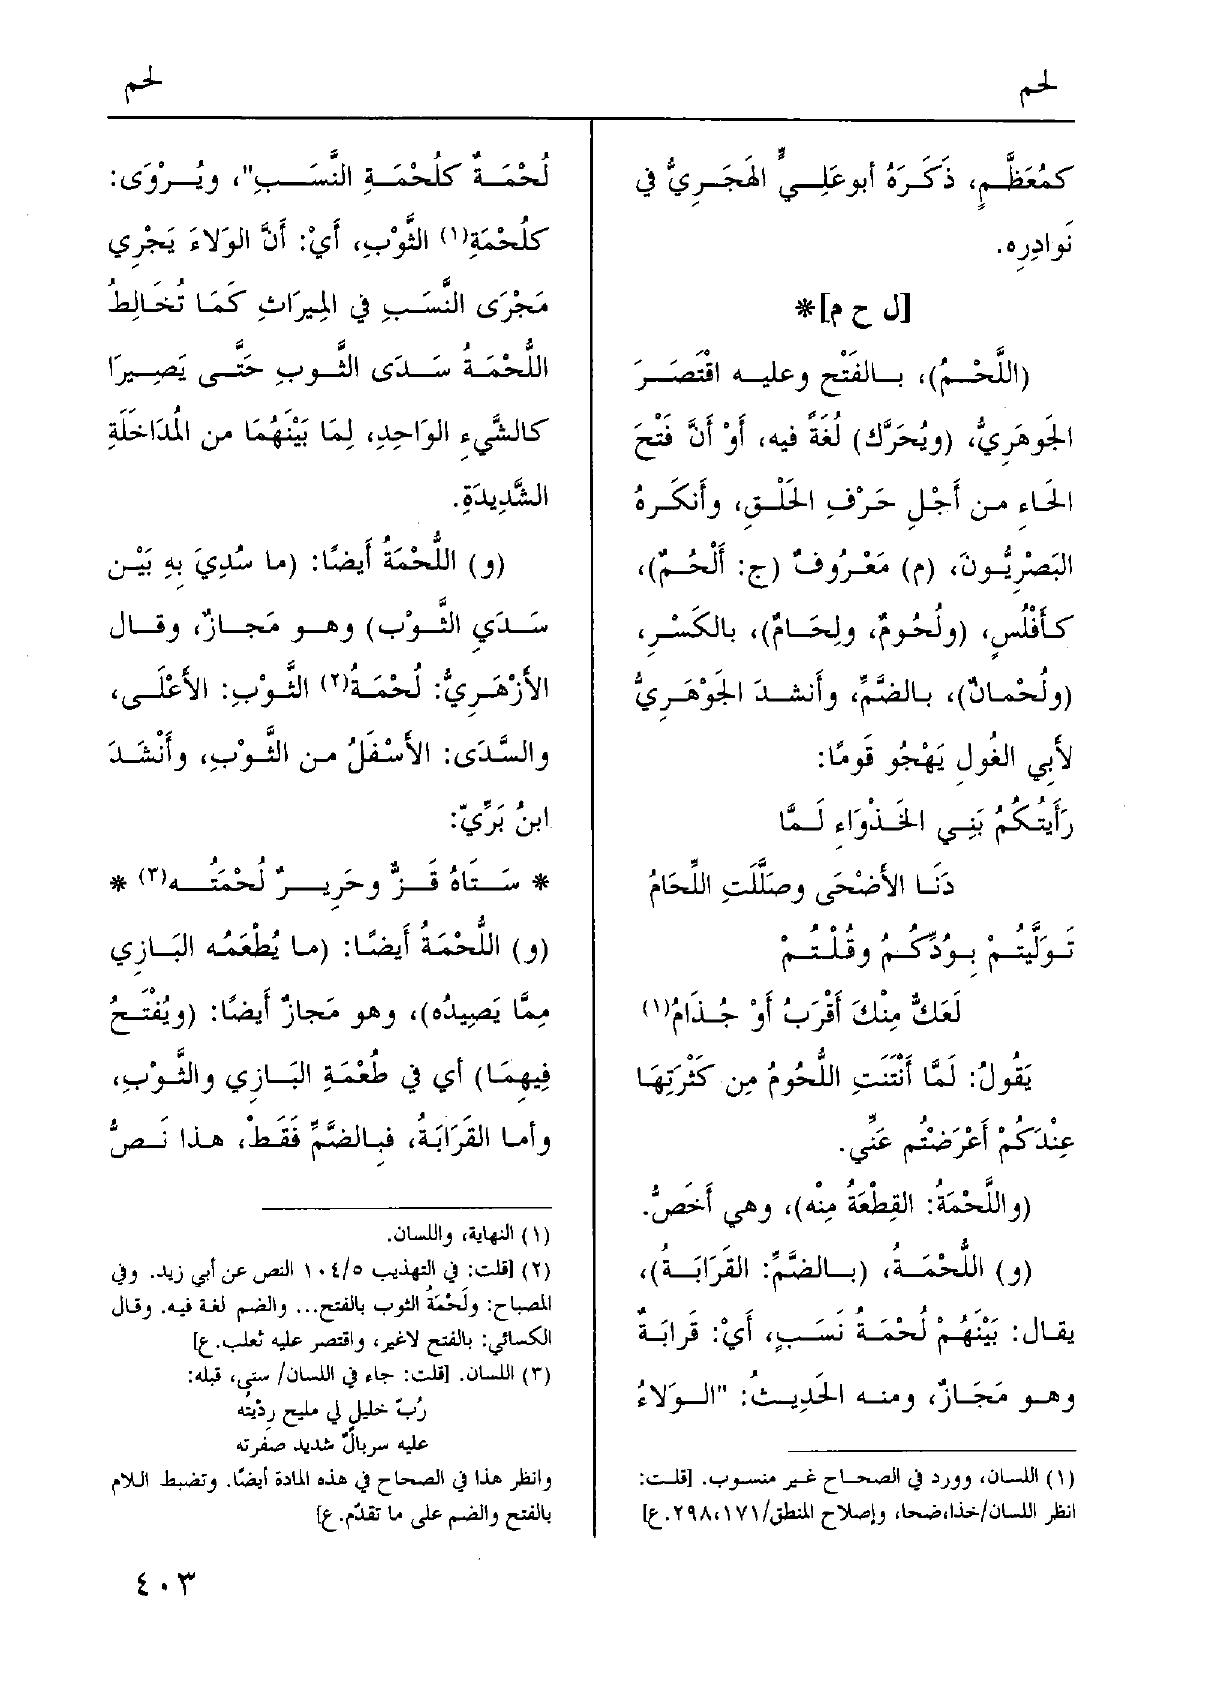 لحم
لحم
كمُعَظَّمٍ، ذَكَرَهُ أبو عَلِيٍّ الهَجَرِيُّ في
نَوادِرِه.
[ل ح م]*
(اللَّحْمُ)، بالفَتْحِ وعليه اقْتَصَرَ
الجَوهَرِيُّ، (ويُحَرَّك) لُغَةٌ فيه، أَوْ أَنَّ فَتْحَ
الحَاءِ من أَجْلِ حَرْفِ الحَلْقِ، وأَنكَرهُ
البَصْرِيُّونَ، (م) مَعْرُوفٌ (ج: أَلْحُمٌ)،
كأَفْلُسٍ، (ولُحُومٌ، ولِحَامٌ)، بالكَسْرِ،
(ولُحْمانٌ)، بالضَّمِّ، وأنشدَ الجَوْهَرِيُّ
لأَبِي الغُولِ يَهْجُو قَومًا:
رَأَيتُكُمُ بَنِي الخَذْوَاءِ لَمَّا
دَنَا الأَضْحَى وصَلَّلَتِ اللِّحَامُ
تَوَلَّيتُمْ بِوُدِّكُمُ وقُلْتُمْ
لَعَكٌّ مِنْكَ أَقْرَبُ أَوْ جُذَامُ(١)
يَقُولُ: لَمَّا أَنْتَنَتِ اللُّحُومُ مِن كَثْرَتِهَا
عِنْدَكُمْ أَعْرَضْتُم عَنِّي.
(واللَّحْمَةُ: القِطْعَةُ مِنْه)، وهي أَخَصُّ.
(و) اللُّحْمَةُ، (بالضَّمِّ: القَرَابَةُ)،
يقال: بَيْنَهُمْ لُحْمَةُ نَسَبٍ، أَيْ: قَرابَةٌ
وهو مَجَازٌ، ومنه الحَدِيثُ: "الوَلاَءُ
(١) اللسان، وورد في الصحاح غير منسوب. [قلت:
انظر اللسان/خذا،ضحا، وإصلاح المنطق/١٧١،٢٩٨.ع]
لُحْمَةٌ كلُحْمَةِ النَّسَبِ"، ويُرْوَى:
كلُحْمَةِ(١) الثَّوْبِ، أَيْ: أَنَّ الوَلاَءَ يَجْرِي
مَجْرَى النَّسَبِ في المِيرَاثِ كَمَا تُخَالِطُ
اللُّحْمَةُ سَدَى الثَّوبِ حَتَّى يَصِيرَا
كالشَّيءِ الوَاحِدِ، لِمَا بَيْنَهُمَا من المُدَاخَلَةِ
الشَّدِيدَةِ.
(و) اللُّحْمَةُ أَيضًا: (ما سُدِيَ بِهِ بَيْن
سَدَيِ الثَّوْب) وهو مَجازٌ، وقال
الأَزْهَرِيُّ: لُحْمَةُ(٢) الثَّوْبِ: الأَعْلَى،
والسَّدَى: الأَسْفَلُ من الثَّوْبِ، وأَنْشَدَ
ابنُ بَرِّيّ:
* سَتَاهُ قَزٌّ وحَرِيرٌ لُحْمَتُه(٣) *
(و) اللُّحْمَةُ أَيضًا: (ما يُطْعَمُه البَازِي
مِمَّا يَصِيدُه)، وهو مَجازٌ أيضًا: (ويُفْتَحُ
فِيهِمَا) أي في طُعْمَةِ البَازِي والثَّوْبِ،
وأما القَرَابَةُ، فبالضَّمِّ فَقَطْ، هذا نَصُّ
(١) النهاية، واللسان.
(٢) [قلت: في التهذيب ١٠٤/٥ النص عن أبي زيد. وفي
المصباح: ولَحْمَةُ الثوب بالفتح... والضم لغة فيه. وقال
الكسائي: بالفتح لاغير، واقتصر عليه ثعلب.ع]
(٣) اللسان. [قلت: جاء في اللسان/ ستى، قبله:
رُبّ خليلٍ لي مليح رِدْيتُه
عليه سربالٌ شديد صفرته
وانظر هذا في الصحاح في هذه المادة أيضًا. وتضبط اللام
بالفتح والضم على ما تقدّم.ع]
٤٠٣